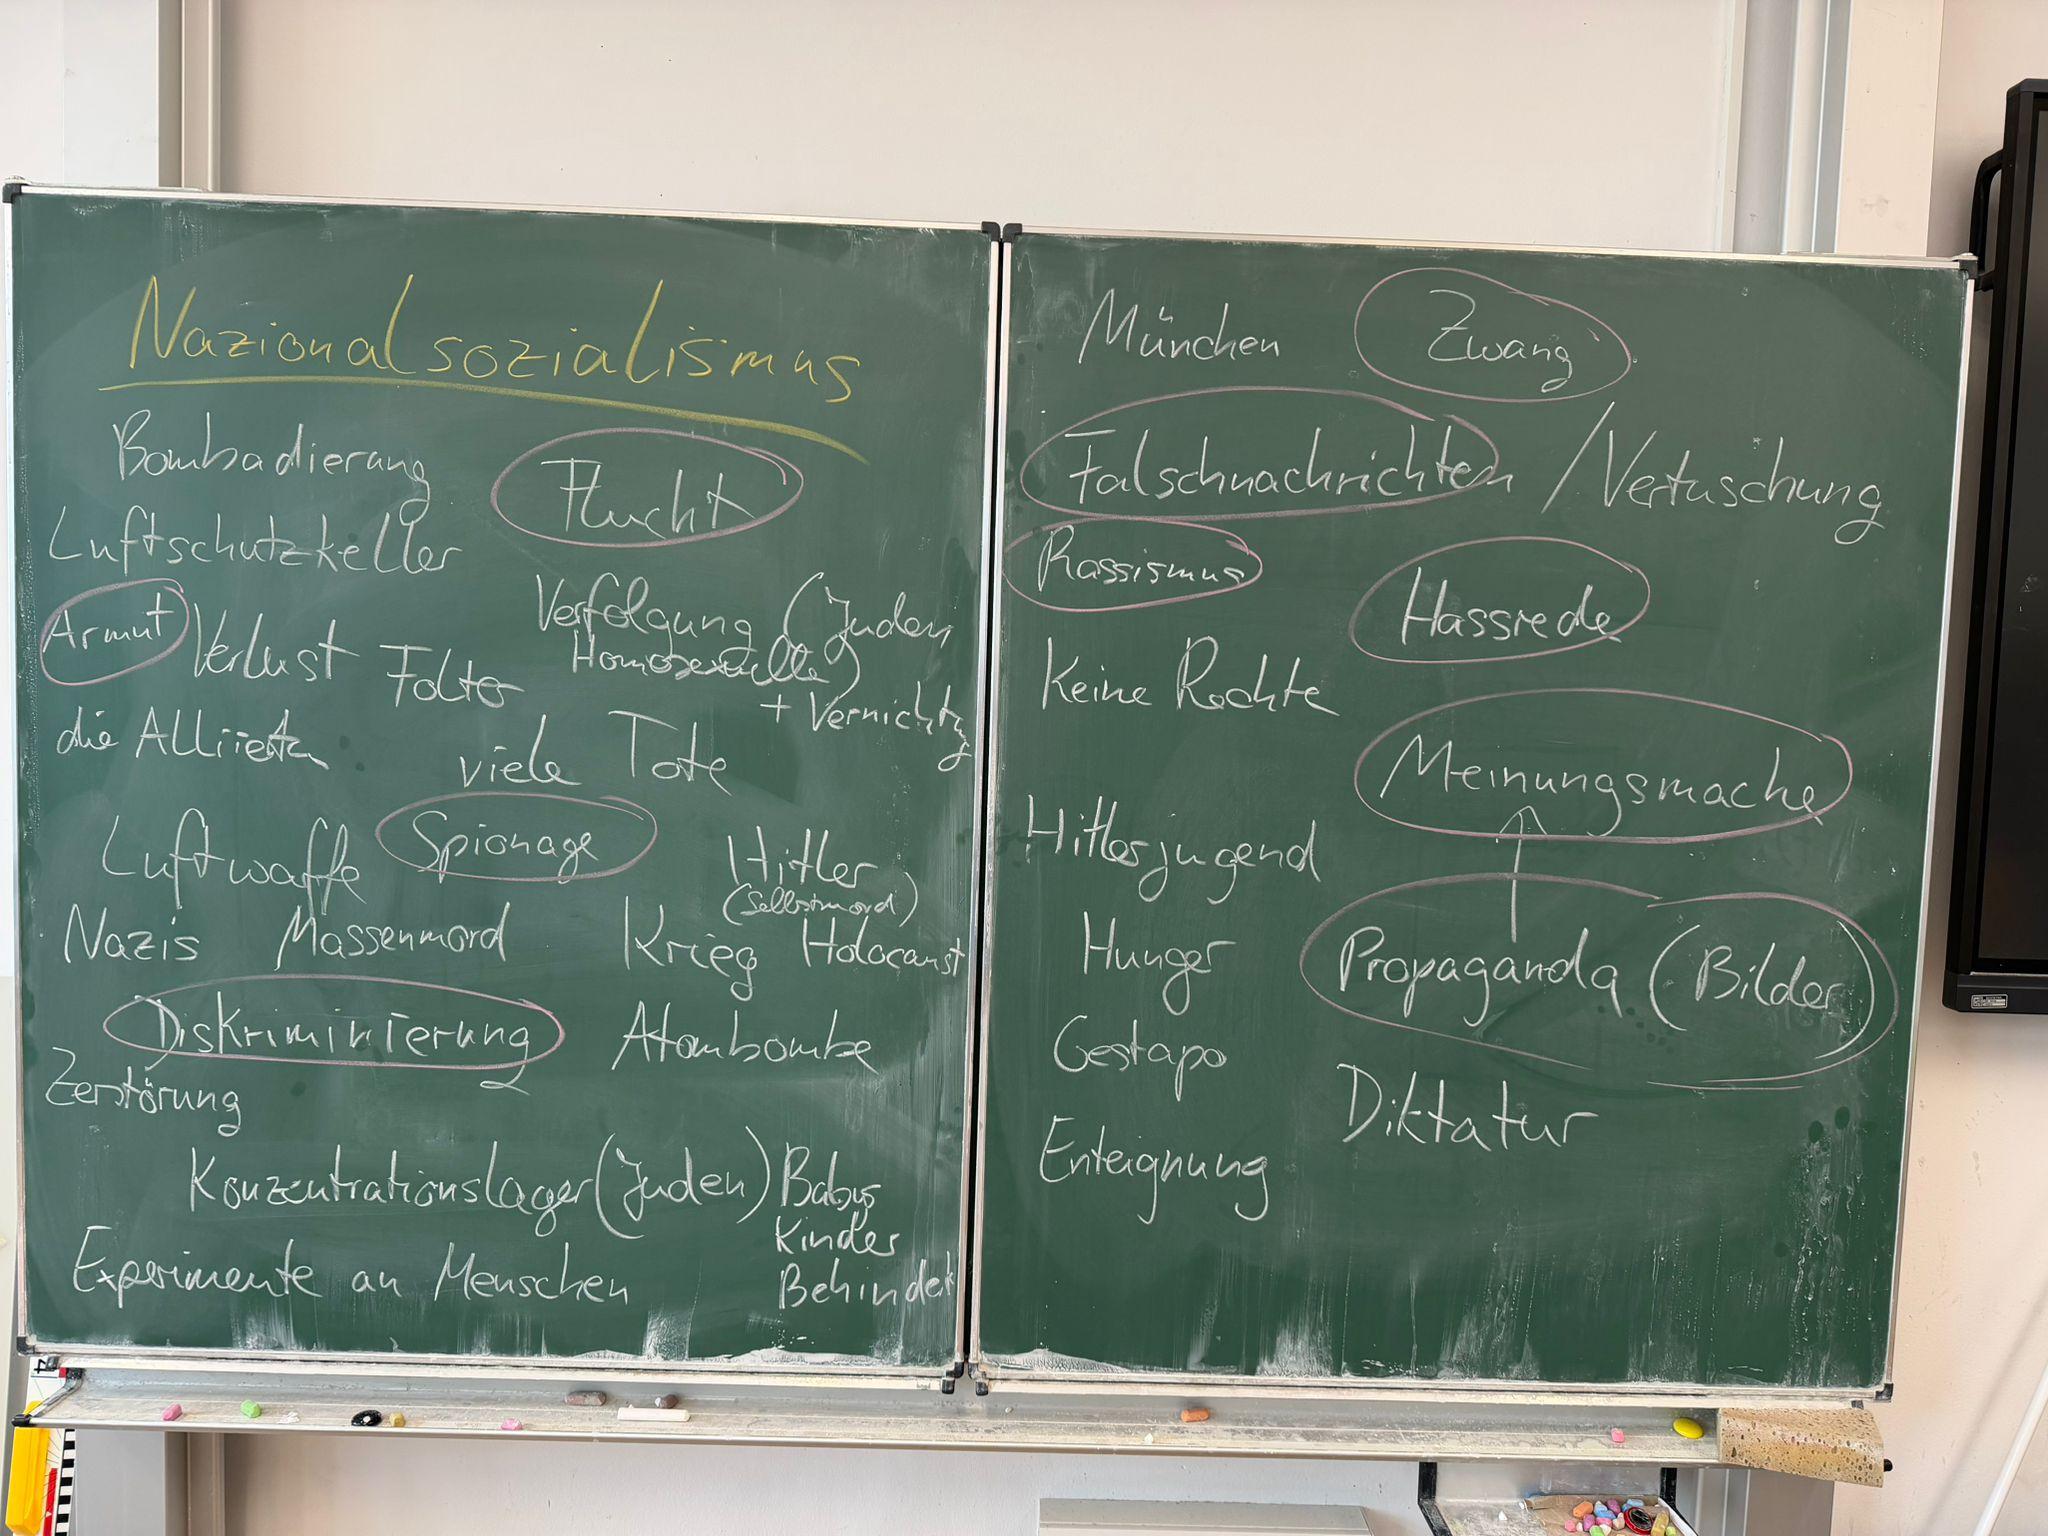 Nazionalsozialismus
Bombadierung
Flucht
Luftschutzkeller
Verfolgung (Juden
Homosexuelle)
+ Vernichtg
Armut Verlust Folter
die Alliierten
viele Tote
Luftwaffe Spionage Hitler
(Selbstmord)
Nazis Massenmord Krieg Holocaust
Diskriminierung Atombombe
Zerstörung
Konzentrationslager (Juden) Babys
Kinder
Experimente an Menschen Behindert
München Zwang
Falschnachrichten / Vertuschung
Rassismus Hassrede
Keine Rechte
Meinungsmache
Hitlerjugend
Hunger Propaganda (Bilder)
Gestapo
Diktatur
Enteignung